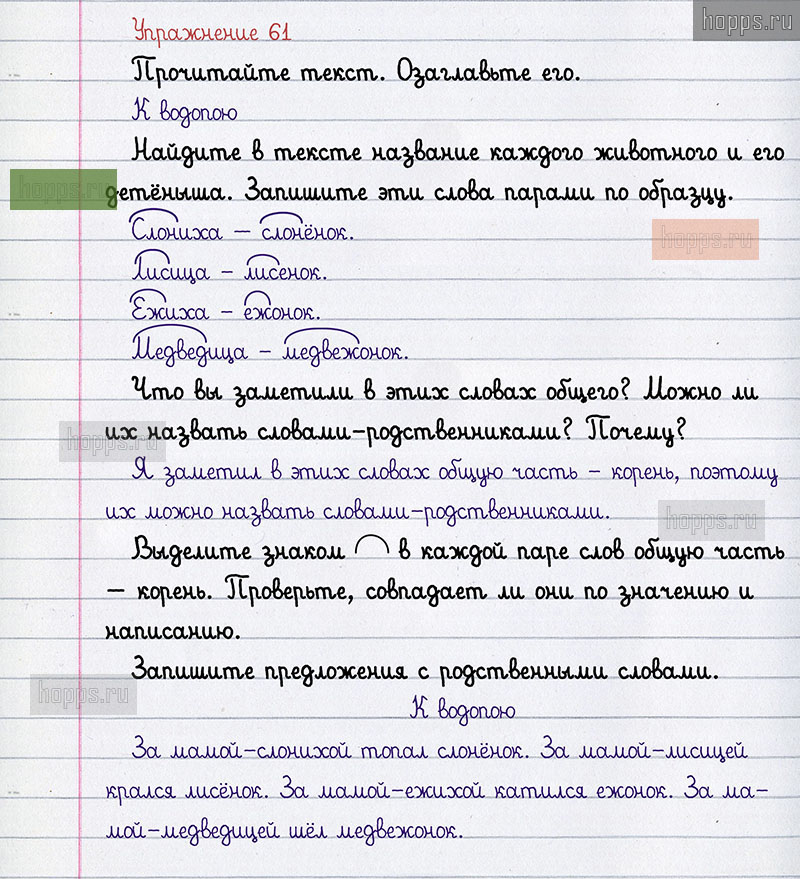 hopps.ru
Упражнение 61
Прочитайте текст. Озаглавьте его.
К водопою
Найдите в тексте название каждого животного и его
hopps.ru
детёныша. Запишите эти слова парами по образцу.
Слониха – слонёнок.
hopps.ru
Лисица – лисенок.
Ежиха – ежонок.
Медведица – медвежонок.
Что вы заметили в этих словах общего? Можно ли
hopps.ru
их назвать словами-родственниками? Почему?
Я заметил в этих словах общую часть – корень, поэтому
их можно назвать словами-родственниками.
hopps.ru
Выделите знаком в каждой паре слов общую часть
– корень. Проверьте, совпадает ли они по значению и
написанию.
Запишите предложения с родственными словами.
hopps.ru
К водопою
За мамой-слонихой топал слонёнок. За мамой-лисицей
крался лисёнок. За мамой-ежихой катился ежонок. За ма-
мой-медведицей шёл медвежонок.